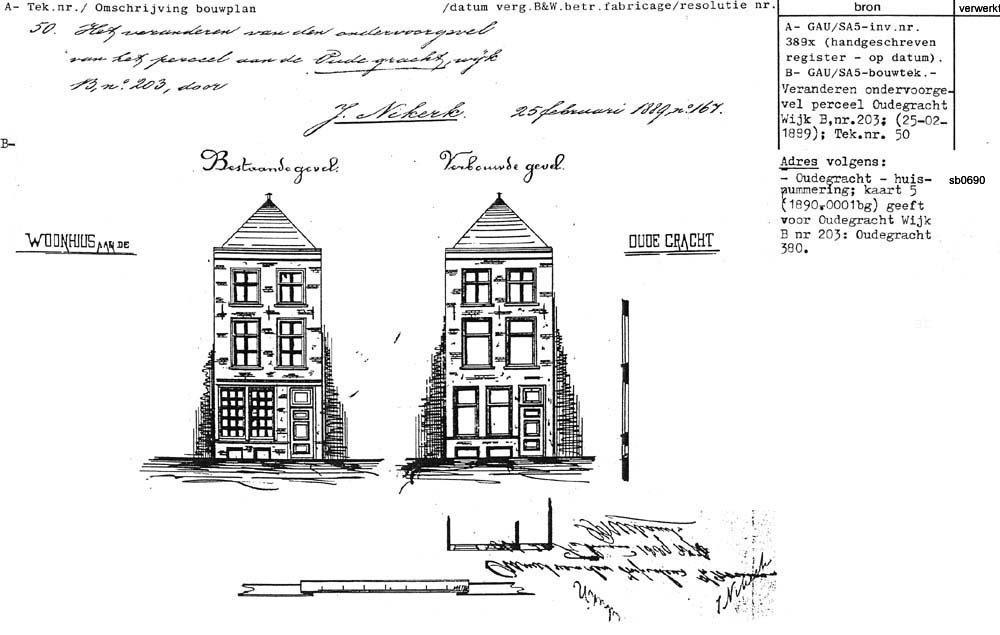 A- Tek.nr./ Omschrijving bouwplan
/datum verg.B&W.betr.fabricage/resolutie nr.
bron
verwerkt
50. Het veranderen van den ondervoorgevel
van het perceel aan de Oude gracht, wijk
B, no. 203, door
J. Nikerk. 25 februari 1889, no. 167.
A- GAU/SA5-inv.nr.
389x (handgeschreven
register - op datum).
B- GAU/SA5-bouwtek.-
Veranderen ondervoorge-
vel perceel Oudegracht
Wijk B,nr.203; (25-02-
1889); Tek.nr. 50
B-
Bestaande gevel.
Verbouwde gevel.
Adres volgens:
- Oudegracht - huis-
nummering; kaart 5
(1890.0001bg) geeft
voor Oudegracht Wijk
B nr 203: Oudegracht
380.
sb0690
WOONHUIS AAN DE
OUDE GRACHT
J Nikerk